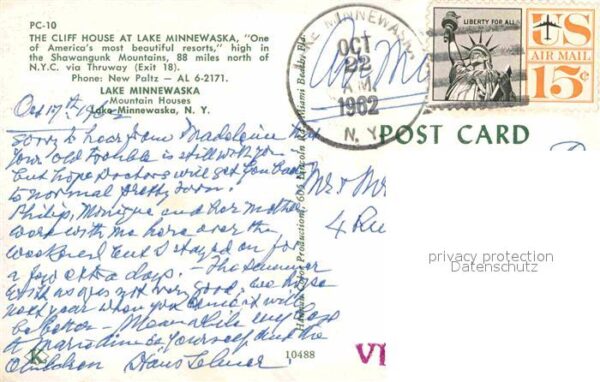 PC-10
THE CLIFF HOUSE AT LAKE MINNEWASKA, "One
of America's most beautiful resorts," high in
the Shawangunk Mountains, 88 miles north of
N.Y.C. via Thruway (Exit 18).
Phone: New Paltz — AL 6-2171.
LAKE MINNEWASKA
Mountain Houses
Lake Minnewaska, N. Y.
Oct 17th 1962
Sorry to hear from Madeleine that
your old trouble is still with you -
but hope Doctors will get you back
to normal pretty soon!
Philip, Monique and her mother
were with me here over the
weekend but I stayed on for
a few extra days. - The summer
with us was not very good, we hope
next year when you
be better - Meanwhile my love
to as yourself and the
Children Hans
LAKE MINNEWASKA
OCT
22
AM
1962
N.Y.
LIBERTY FOR ALL
US
AIR MAIL
15¢
Air Mail
POST CARD
Mr & Mr
4 Ru
VI
10488
K
privacy protection
Datenschutz